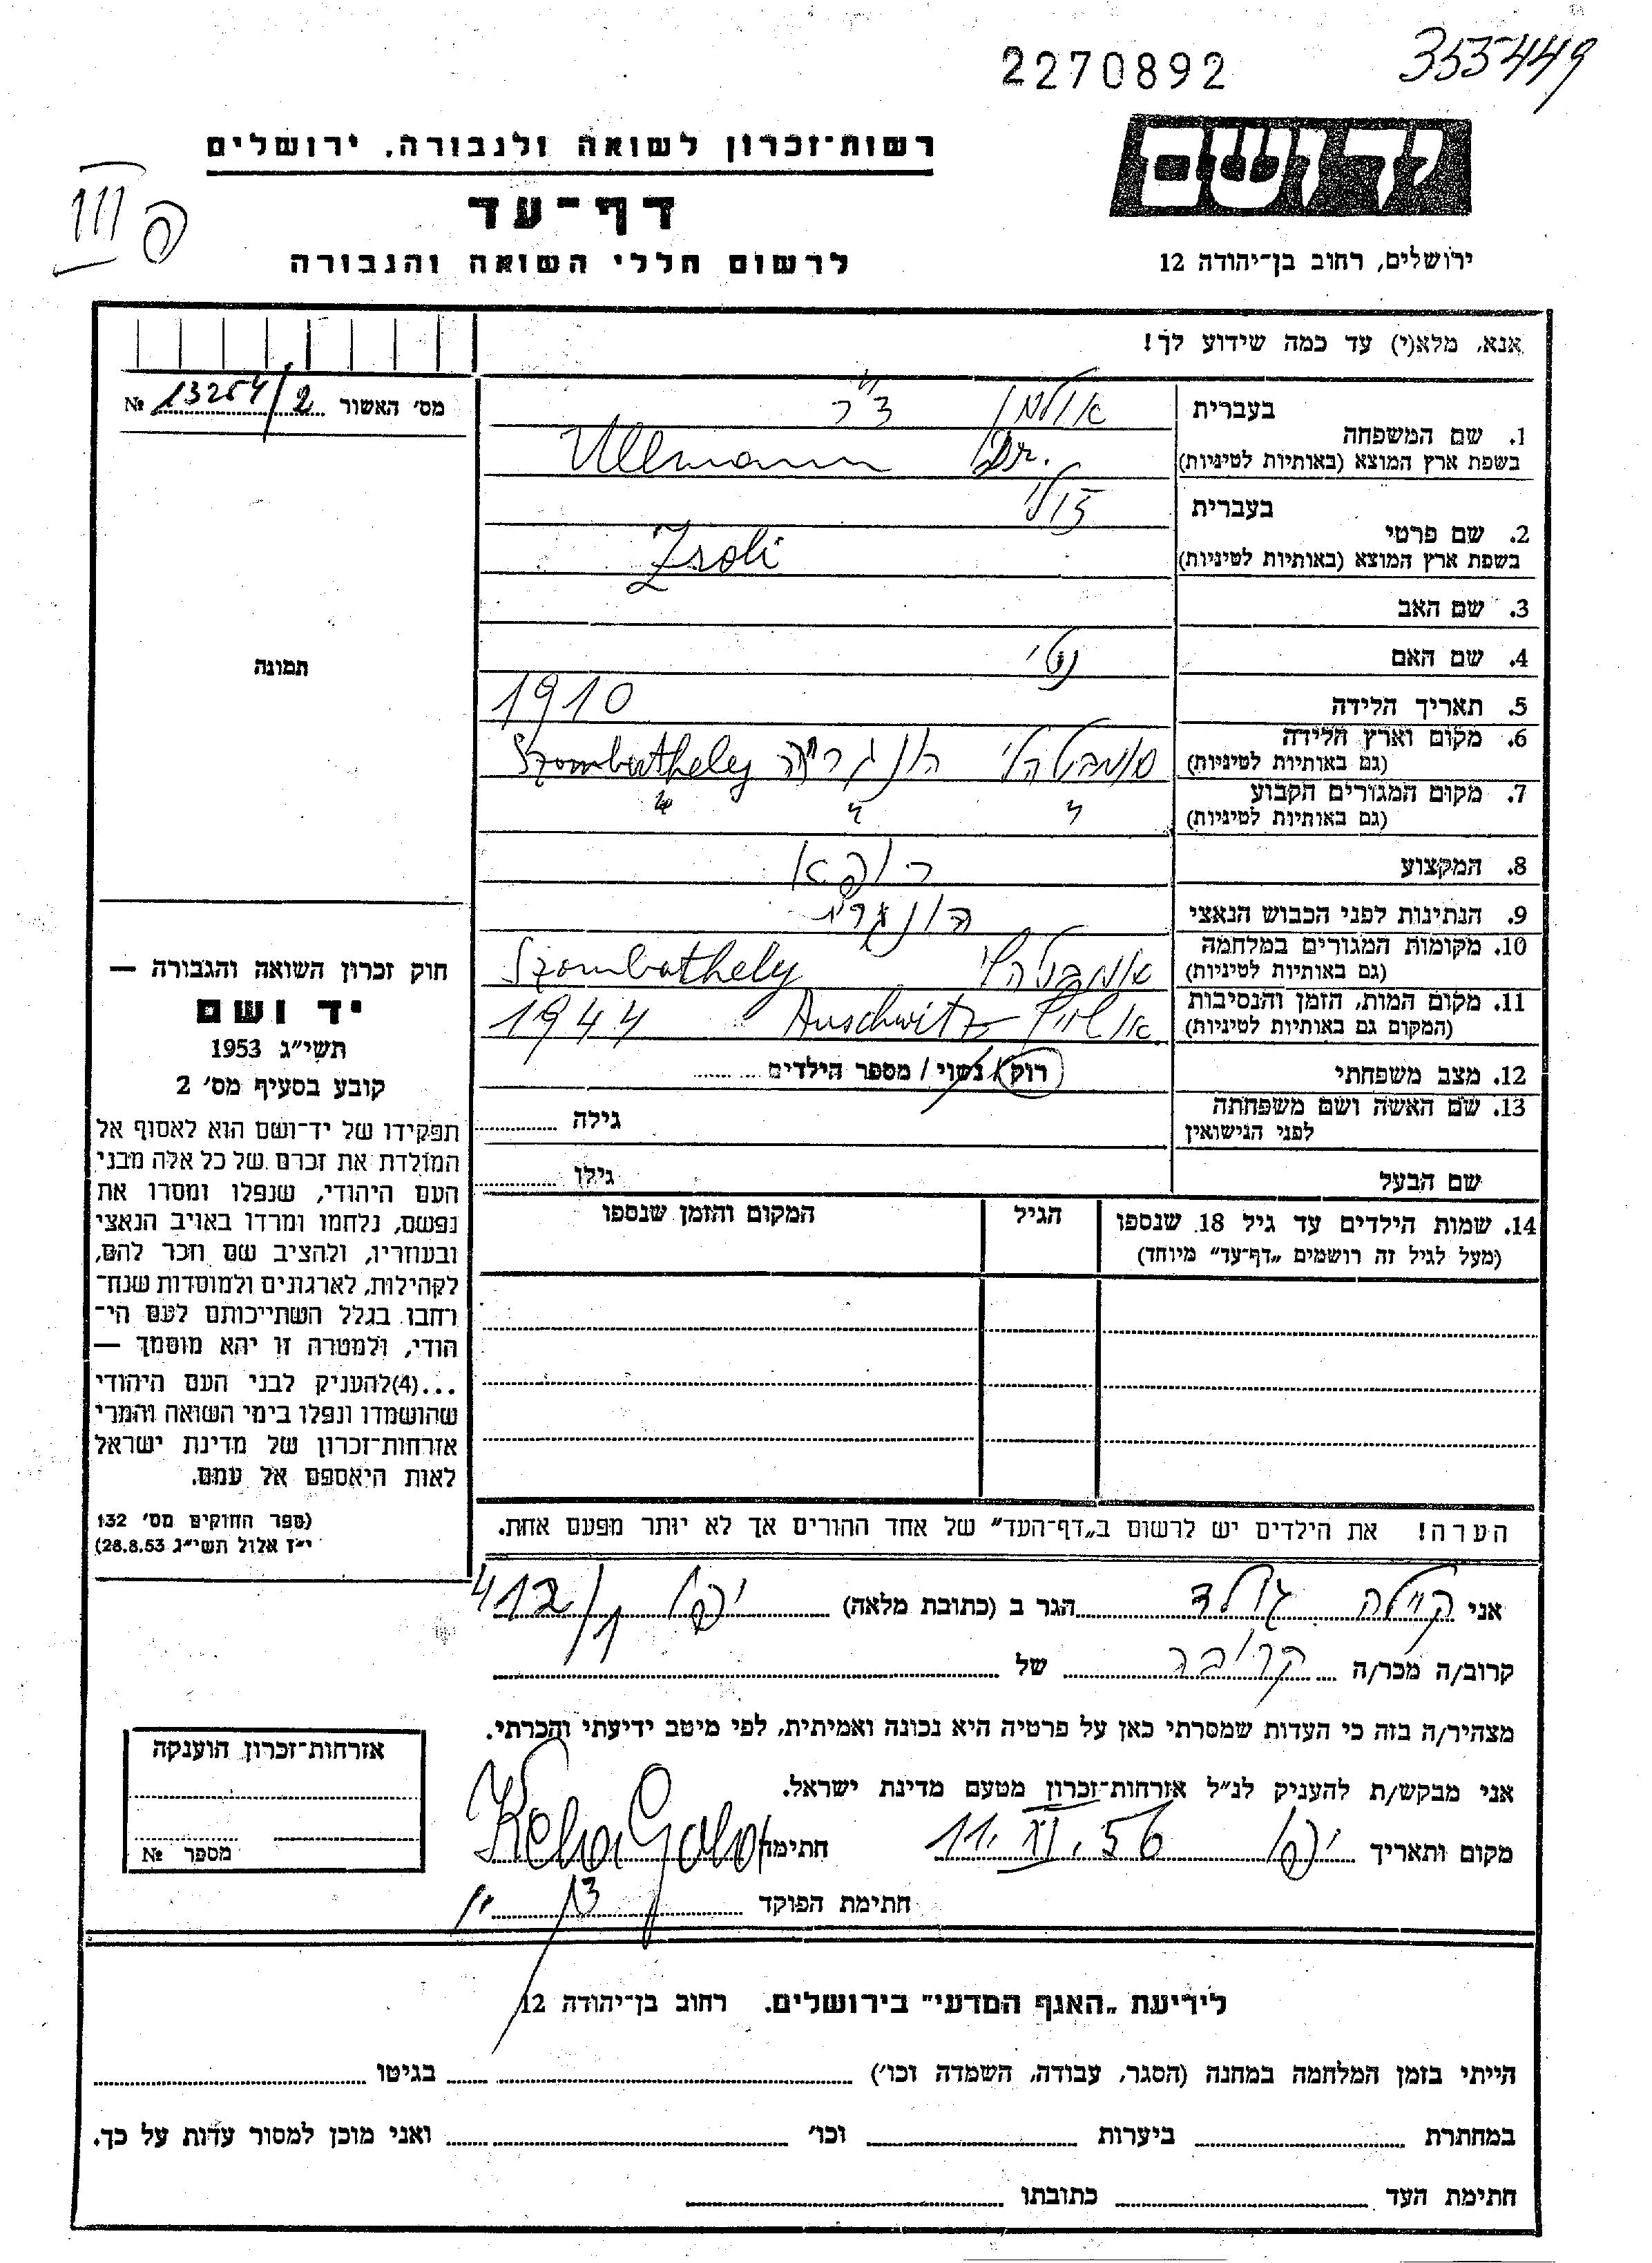 2270892
353449
רשות־זכרון לשואה ולגבורה, ירושלים
יד ושם
דף־עד
III פ
לרשום חללי השואה והגבורה
ירושלים, רחוב בן־יהודה 12
אנא, מלא(י) עד כמה שידוע לך!
מס׳ האשור 13254/2 №
1. שם המשפחה
בעברית אולמן ד״ר
בשפת ארץ המוצא (באותיות לטיניות) Ullmann Dr.
2. שם פרטי
בעברית ז׳ולי
בשפת ארץ המוצא (באותיות לטיניות) Zsoli
3. שם האב
4. שם האם
תמונה
5. תאריך הלידה 1910
6. מקום וארץ הלידה
(גם באותיות לטיניות) סומבטהלי הונגריה Szombathely
7. מקום המגורים הקבוע
(גם באותיות לטיניות) " " "
8. המקצוע רופא
9. הנתינות לפני הכבוש הנאצי הונגרית
10. מקומות המגורים במלחמה
(גם באותיות לטיניות) סומבטהלי Szombathely
11. מקום המות, הזמן והנסיבות
(המקום גם באותיות לטיניות) אושוויץ Auschwitz 1944
12. מצב משפחתי רוק / נשוי / מספר הילדים
13. שם האשה ושם משפחתה
לפני הנישואין
גילה
שם הבעל
גילו
14. שמות הילדים עד גיל 18 שנספו
(מעל לגיל זה רושמים „דף־עד״ מיוחד)
הגיל
המקום והזמן שנספו
חוק זכרון השואה והגבורה —
יד ושם
תשי״ג 1953
קובע בסעיף מס׳ 2
תפקידו של יד־ושם הוא לאסוף אל
המולדת את זכרם של כל אלה מבני
העם היהודי, שנפלו ומסרו את
נפשם, נלחמו ומרדו באויב הנאצי
ובעוזריו, ולהציב שם וזכר להם,
לקהילות, לארגונים ולמוסדות שנח־
רחבו בגלל השתייכותם לעם הי־
הודי, ולמטרה זו יהא מוסמך —
...(4)להעניק לבני העם היהודי
שהושמדו ונפלו בימי השואה והמרי
אזרחות־זכרון של מדינת ישראל
לאות היאספם אל עמם.
(ספר החוקים מס׳ 132
י״ז אלול תשי״ג 28.8.53)
הערה! את הילדים יש לרשום ב„דף־העד״ של אחד ההורים אך לא יותר מפעם אחת.
אני קילה גולד הגר ב (כתובת מלאה) יפו 412/1
קרוב/ה מכר/ה קרובה של
מצהיר/ה בזה כי העדות שמסרתי כאן על פרטיה היא נכונה ואמיתית, לפי מיטב ידיעתי והכרתי.
אני מבקש/ת להעניק לנ״ל אזרחות־זכרון מטעם מדינת ישראל.
מקום ותאריך יפו 11. VI. 56 חתימה Kela Gold
חתימת הפוקד
אזרחות־זכרון הוענקה
מספר №
לידיעת „האגף המדעי״ בירושלים. רחוב בן־יהודה 12
הייתי בזמן המלחמה במחנה (הסגר, עבודה, השמדה וכו׳) בגיטו
במחתרת ביערות וכו׳ ואני מוכן למסור עדות על כך.
חתימת העד כתובתו